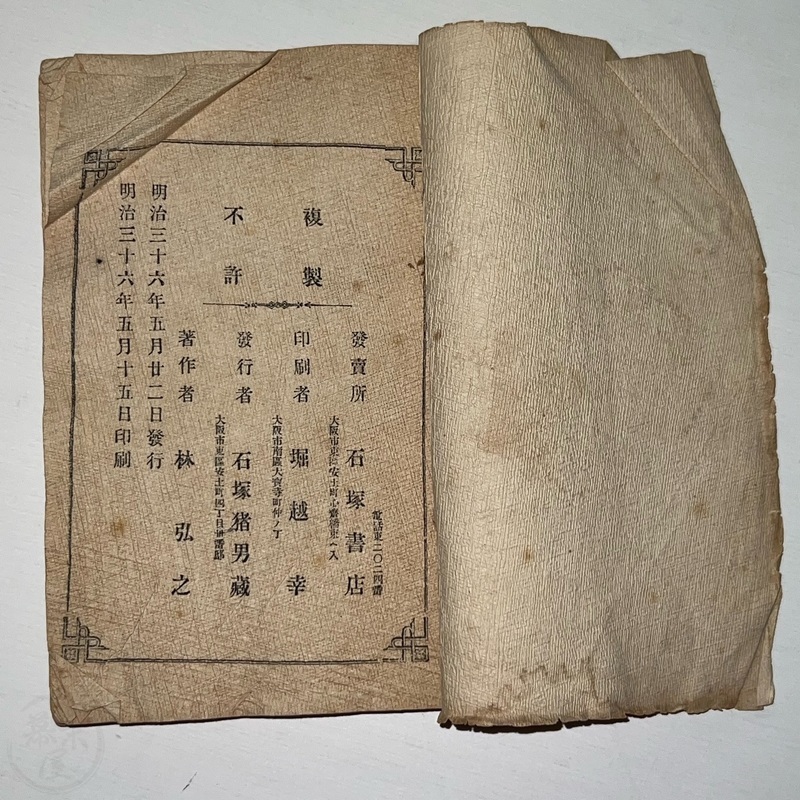 明治三十六年五月十五日印刷
明治三十六年五月廿二日發行
不許
複製
著作者 林弘之
大阪市東區安土町四丁目卅番邸
發行者 石塚猪男藏
大阪市南區大寶寺町仲ノ丁
印刷者 堀越幸
大阪市東區安土町心齋橋東ヘ入
發賣所 石塚書店
電話東二〇二四番